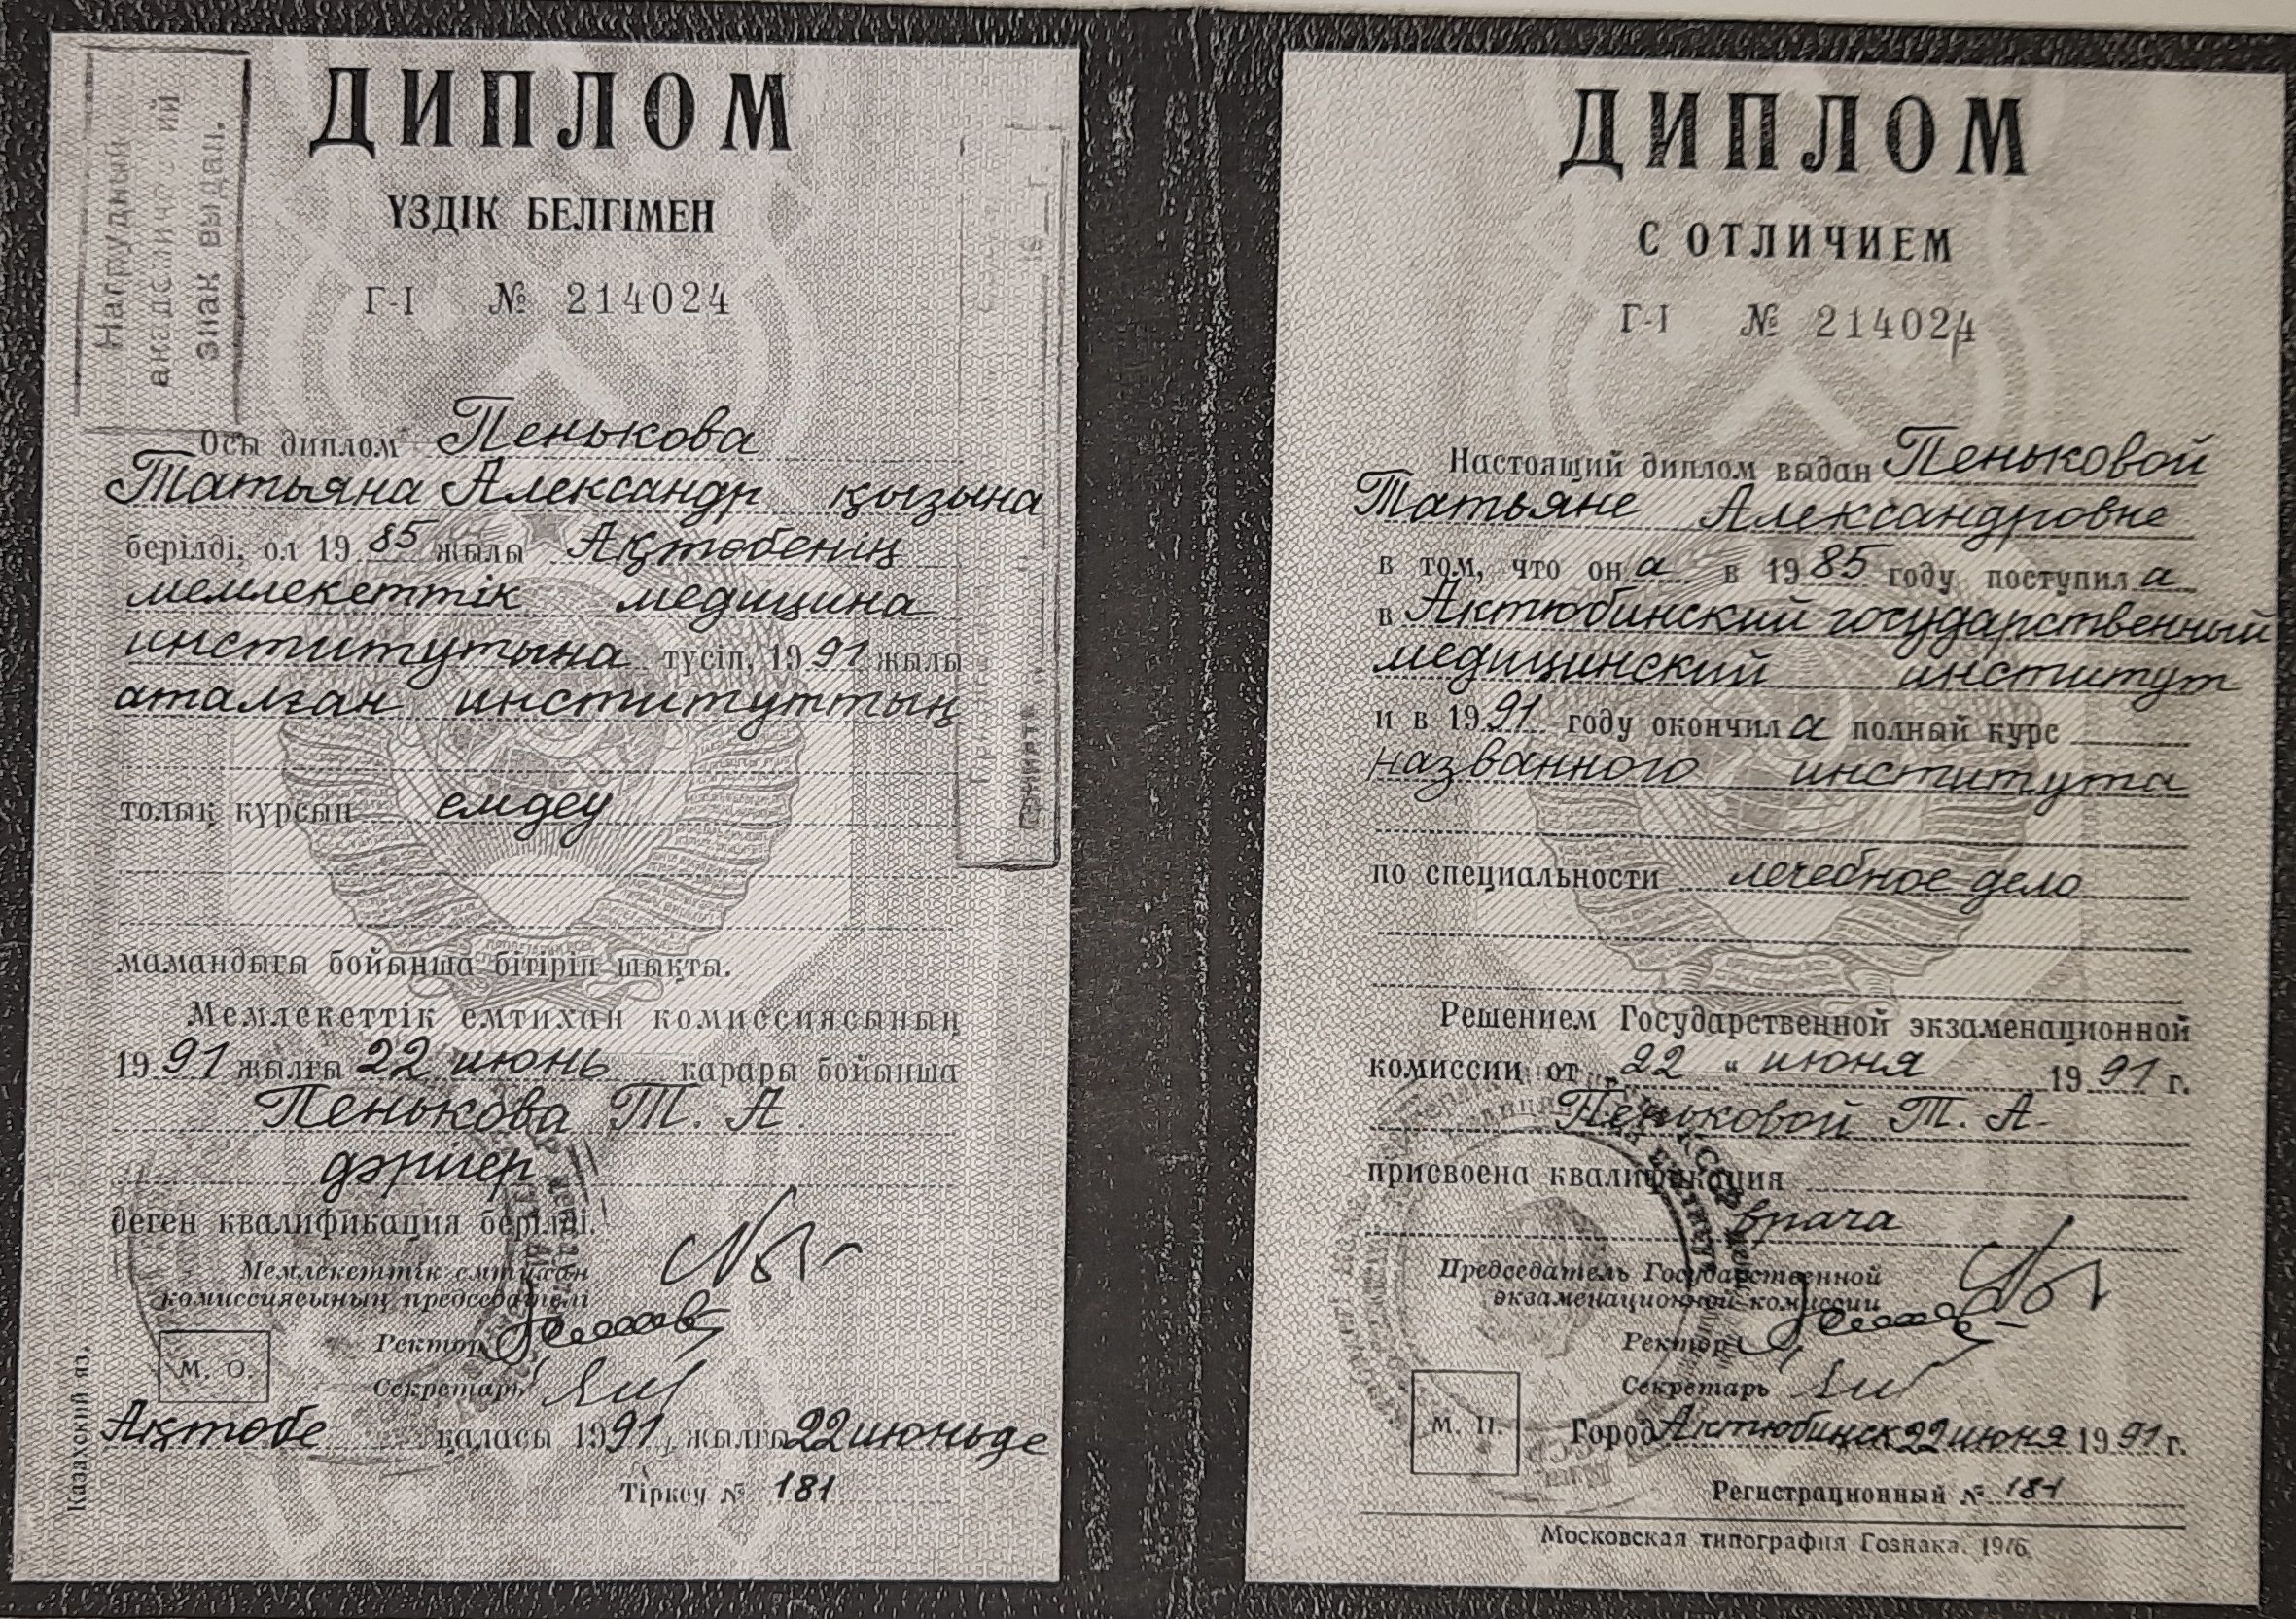 Нагрудный
академический
знак выдан.
ДИПЛОМ
ҮЗДІК БЕЛГІМЕН
Г-I № 214024
Осы диплом Пенькова
Татьяна Александр қызына
берілді, ол 19 85 жылы Ақтөбенің
мемлекеттік медицина
институтына түсіп, 19 91 жылы
аталған институттың
толық курсын емдеу
мамандығы бойынша бітіріп шықты.
Мемлекеттік емтихан комиссиясының
19 91 жылғы 22 июнь қарары бойынша
Пенькова Т. А.
дәрігер
деген квалификация берілді.
Мемлекеттік емтихан
комиссиясының председателі
Ректор
М. О.
Секретарь
Ақтөбе қаласы 1991 жылғы 22 июньде
Тіркеу № 181
Казахский яз.
ДИПЛОМ
С ОТЛИЧИЕМ
Г-I № 214024
Настоящий диплом выдан Пеньковой
Татьяне Александровне
в том, что он а в 19 85 году поступил а
в Актюбинский государственный
медицинский институт
и в 19 91 году окончил а полный курс
названного института
по специальности лечебное дело
Решением Государственной экзаменационной
комиссии от „ 22 “ июня 19 91 г.
Пеньковой Т. А.
присвоена квалификация
врача
Председатель Государственной
экзаменационной комиссии
Ректор
Секретарь
М. П.
Город Актюбинск 22 июня 19 91 г.
Регистрационный № 181
Московская типография Гознака. 1976.